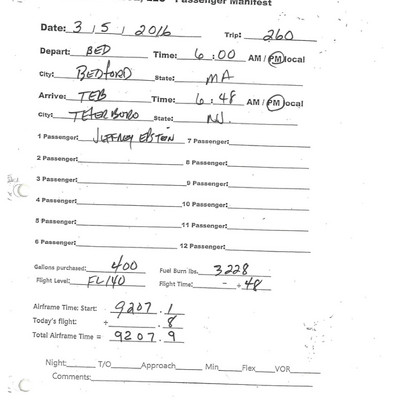 Passenger Manifest
Date: 3 / 5 / 2016 Trip: 260
Depart: BED Time: 6 : 00 AM / PM local
City: BEDFORD State: MA
Arrive: TEB Time: 6 : 48 AM / PM local
City: TETERBORO State: NJ
1 Passenger: JEFFREY EPSTEIN 7 Passenger:
2 Passenger: 8 Passenger:
3 Passenger: 9 Passenger:
4 Passenger: 10 Passenger:
5 Passenger: 11 Passenger:
6 Passenger: 12 Passenger:
Gallons purchased: 400 Fuel Burn lbs. 3228
Flight Level: FL140 Flight Time: - + 48
Airframe Time: Start: 9207.1
Today's flight: + .8
Total Airframe Time = 9207.9
Night: T/O Approach Min Flex VOR
Comments: